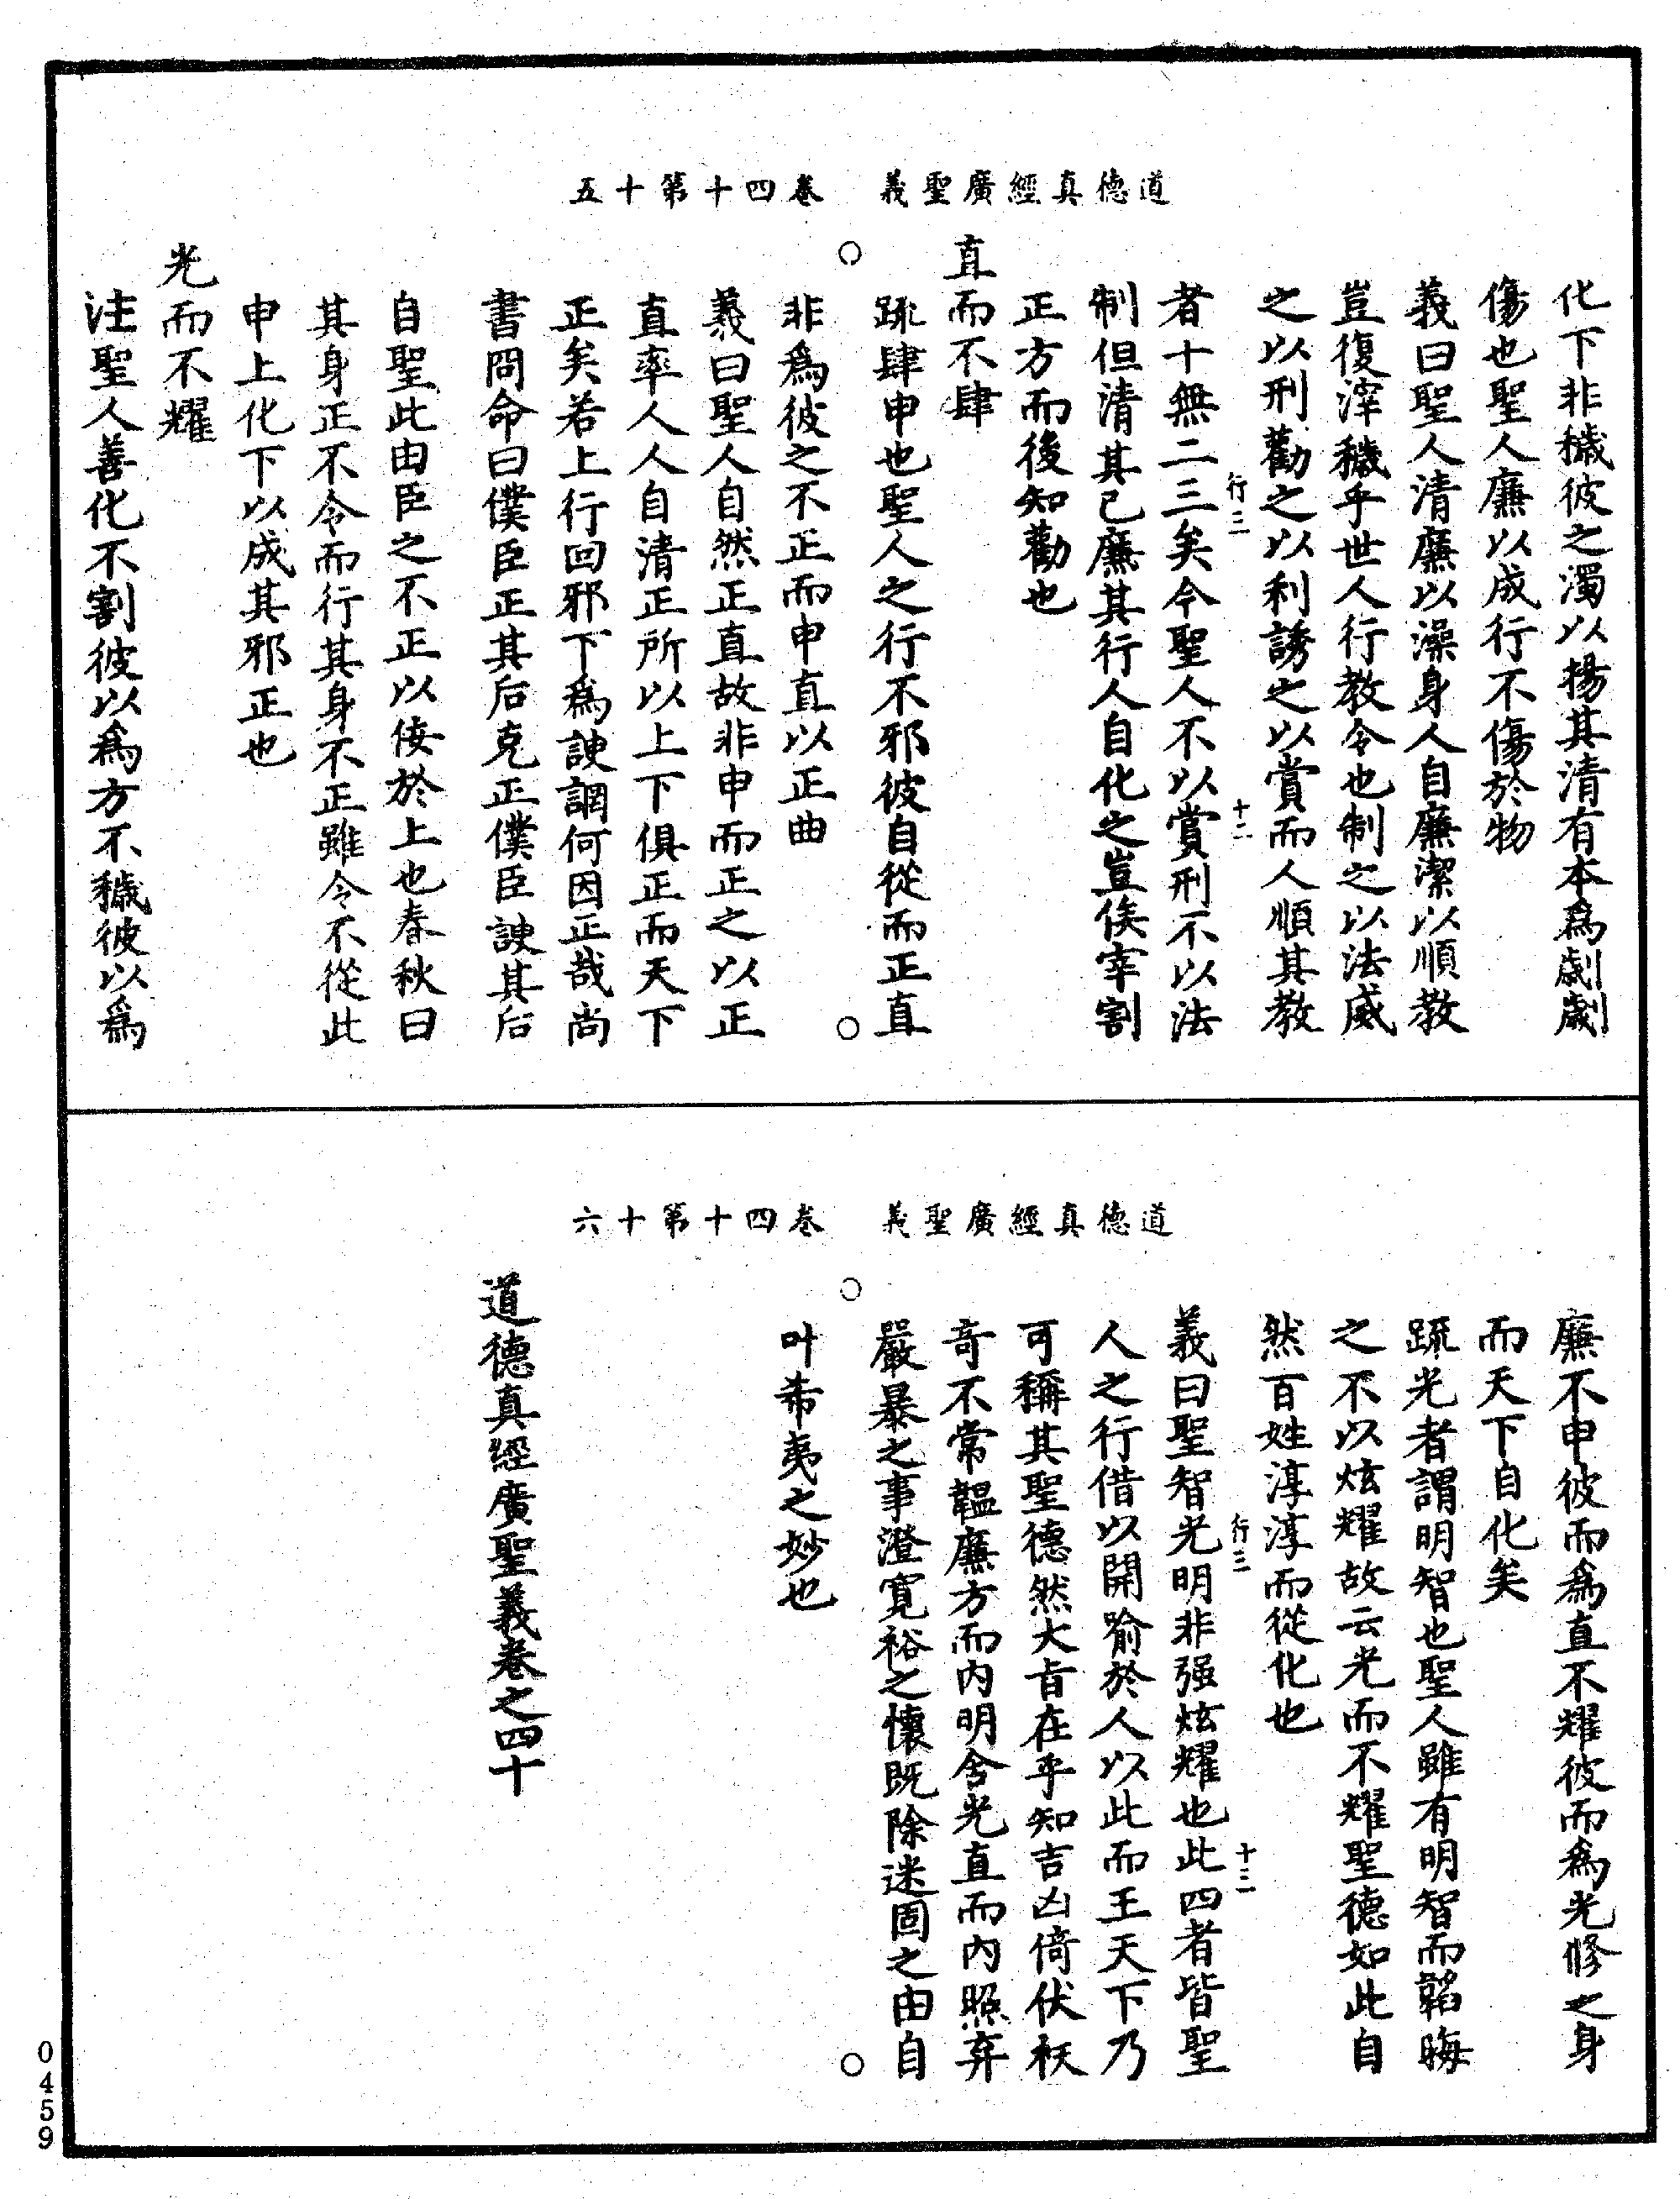 道德真經廣聖義　卷四十第十五
化下非穢彼之濁以揚其清有本為劌劌
傷也聖人廉以成行不傷於物
義曰聖人清廉以澡身人自廉潔以順教
豈復滓穢乎世人行教令也制之以法威
之以刑勸之以利誘之以賞而人順其教
行三　十二
者十無二三矣今聖人不以賞刑不以法
制但清其已廉其行人自化之豈俟宰割
正方而後知勸也
直而不肆
疏肆申也聖人之行不邪彼自從而正直
非為彼之不正而申直以正曲
義曰聖人自然正直故非申而正之以正
直率人人自清正所以上下俱正而天下
正矣若上行回邪下為諛誷何因正哉尚
書冏命曰僕臣正其后克正僕臣諛其后
自聖此由臣之不正以佞於上也春秋曰
其身正不令而行其身不正雖令不從此
申上化下以成其邪正也
光而不耀
注聖人善化不割彼以為方不穢彼以為
道德真經廣聖義　卷四十第十六
廉不申彼而為直不耀彼而為光修之身
而天下自化矣
疏光者謂明智也聖人雖有明智而韜晦
之不以炫耀故云光而不耀聖德如此自
然百姓淳淳而從化也
行三　十三
義曰聖智光明非强炫耀也此四者皆聖
人之行借以開喻於人以此而王天下乃
可稱其聖德然大旨在乎知吉凶倚伏祅
奇不常韞廉方而內明含光直而內照弃
嚴暴之事澄寬裕之懷既除迷固之由自
叶希夷之妙也
道德真經廣聖義卷之四十
0459